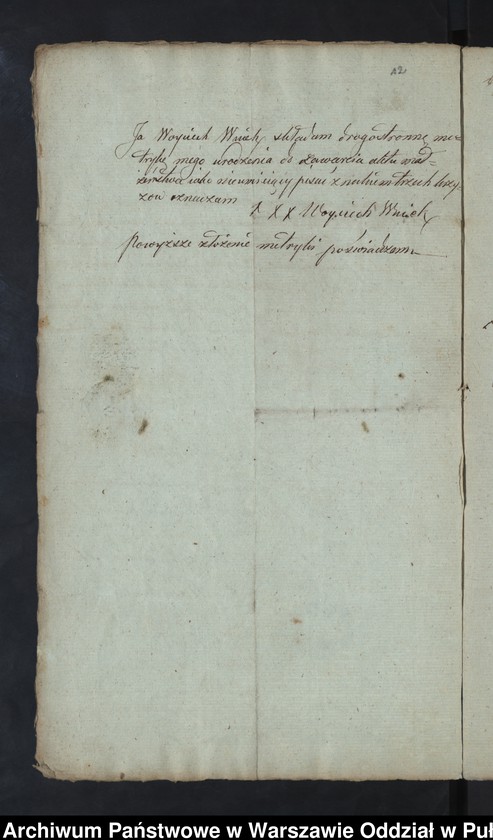 12
Ja Woyciech Wnuk składam drogostronnę me-
trykę mego urodzenia do zawarcia aktu mał-
żeństwa iako nieumieiący pisać znakiem trzech krzy-
żow oznaczam
X X X Woyciech Wnuk
Powyższe złożenie metryki poświadczam
Archiwum Państwowe w Warszawie Oddział w Puł